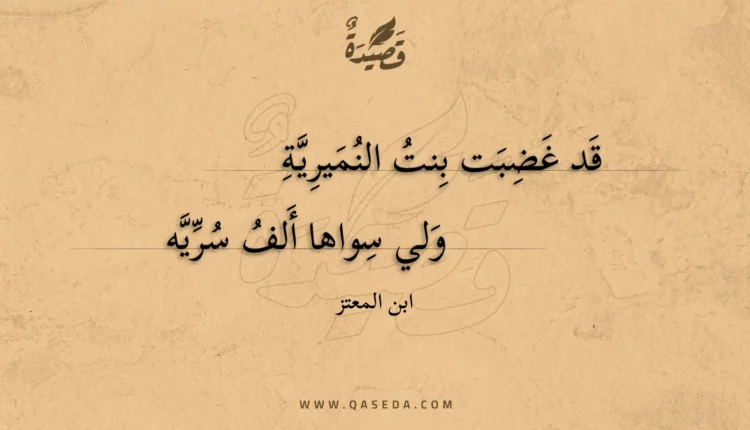 قَصِيْدَةٌ
قَد غَضِبَت بِنتُ النُمَيرِيَّةِ
وَلي سِواها أَلفُ سُرِّيَّه
ابن المعتز
WWW.QASEDA.COM